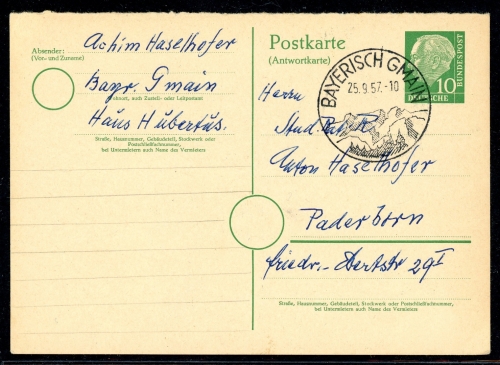 Absender:
(Vor- und Zuname)
Achim Haselhofer
Bayr. Gmain
Wohnort, auch Zustell- oder Leitpostamt
Haus Hubertus.
Straße, Hausnummer, Gebäudeteil, Stockwerk oder
Postschließfachnummer,
bei Untermietern auch Name des Vermieters
Postkarte
(Antwortkarte)
BAYERISCH GMAIN
25.9.57.-10
DEUTSCHE
BUNDESPOST
10
Herrn
Stud. Rat
Anton Haselhofer
Paderborn
Friedr.- 29I
Straße, Hausnummer, Gebäudeteil, Stockwerk oder Postschließfachnummer,
bei Untermietern auch Name des Vermieters